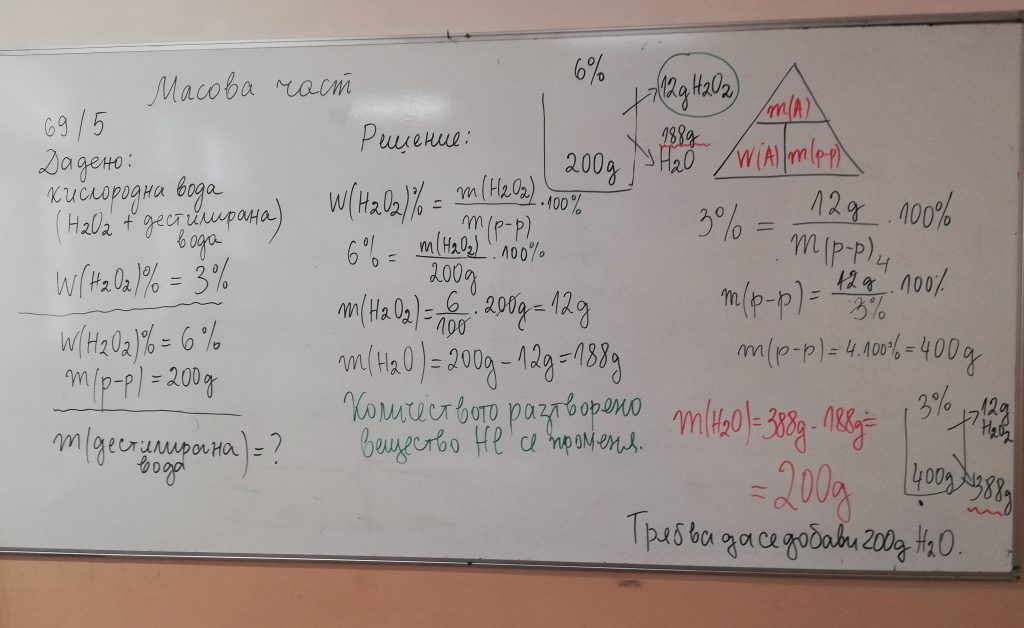 Масова част
69/5
Дадено:
кислородна вода
(H₂O₂ + дестилирана
вода)
W(H₂O₂)% = 3%
W(H₂O₂)% = 6%
m(р-р) = 200g
m(дестилирана
вода) = ?
Решение:
W(H₂O₂)% = m(H₂O₂)/m(р-р) · 100%
6% = m(H₂O₂)/200g · 100%
m(H₂O₂) = 6/100 · 200g = 12g
m(H₂O) = 200g - 12g = 188g
Количеството разтворено
вещество НЕ се променя.
6%
12g H₂O₂
200g
188g
H₂O
m(A)
W(A) m(р-р)
3% = 12g/m(р-р) · 100%
4
m(р-р) = 12g/3% · 100%
m(р-р) = 4.100% = 400g
m(H₂O) = 388g - 188g =
= 200g
3%
12g
H₂O₂
400g
388g
Трябва да се добави 200g H₂O.